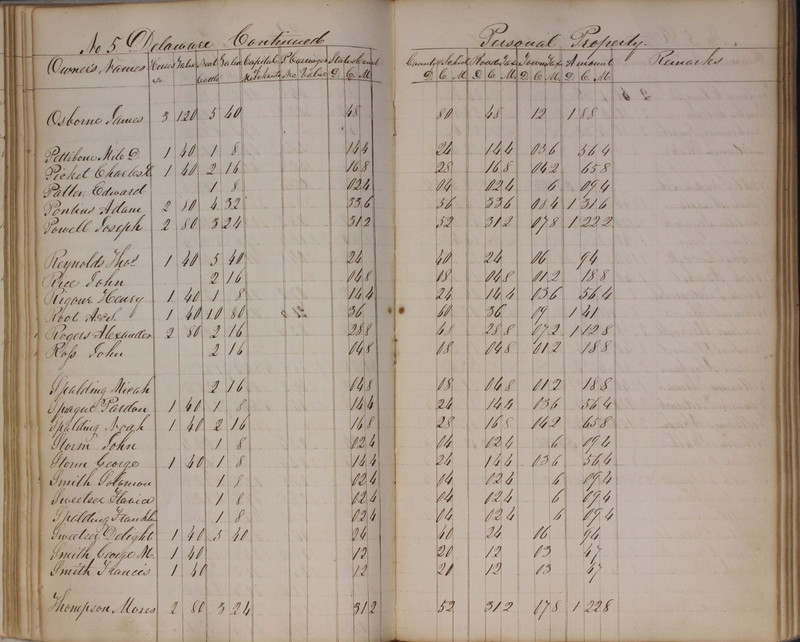 No 5 Delaware Continued Personal Property.
Owners Names Horses Value Neat Cattle Value Capital Merchants &c Value State & Canal D. C. M County & School D C M Road Tax D C M Town Tax D C M Amount D C M Remarks
Osborne James 3 120 5 40 48 80 48 12 1 88
Pettibone Milo D. 1 40 1 8 144 24 144 036 564
Picket Charles 1 40 2 16 168 28 168 042 658
Patten Edward 1 8 024 04 024 6 094
Pontius Adam 2 80 4 32 336 56 336 084 1 316
Powell Joseph 2 80 3 24 312 52 312 078 1 222
Reynolds Thos 1 40 5 40 24 40 24 06 94
Rice John 2 16 048 18 048 012 188
Rigour Henry 1 40 1 8 144 24 144 036 564
Root 1 40 10 80 36 60 36 09 1 41
Rogers Alexander 2 80 2 16 288 48 288 072 1 128
Ross John 2 16 048 08 048 012 188
Spalding Micah 2 16 048 08 048 012 188
Sprague Pardon 1 40 1 8 144 24 144 036 564
Spalding Noah 1 40 2 16 168 28 168 042 658
Storm John 1 8 024 04 024 6 094
Storm George 1 40 1 8 144 24 144 036 564
Smith Solomon 1 8 024 04 024 6 094
Sweetser 1 8 024 04 024 6 094
Spalding Franklin 1 8 024 04 024 6 094
Sweetser Delight 1 40 5 40 24 40 24 06 94
Smith George M. 1 40 12 20 12 03 47
Smith Francis 1 40 12 20 12 03 47
Thompson Moses 2 80 3 24 312 52 312 078 1 228